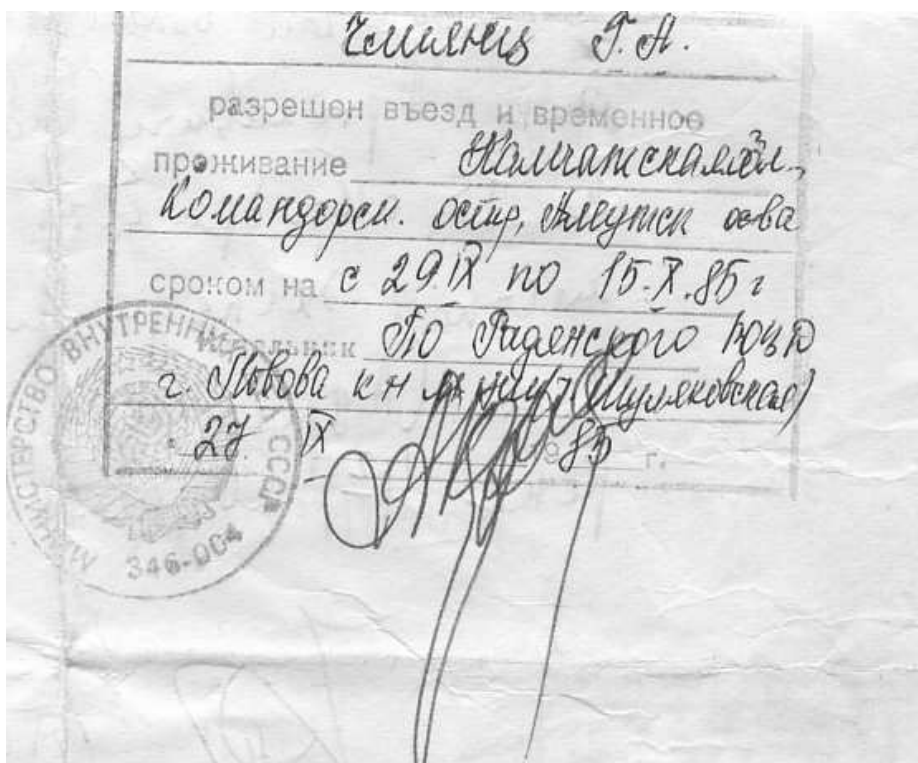 Г. А.
разрешен въезд и временное
проживание Камчатская обл.,
Командорск. остр, Алеутск о-ва
сроком на с 29.IX по 15.X.85 г
Начальник ПО Радянского
г. Львова к-н м (Шуляковская)
27. IX 1985 г.
МИНИСТЕРСТВО ВНУТРЕННИХ СССР
346-004